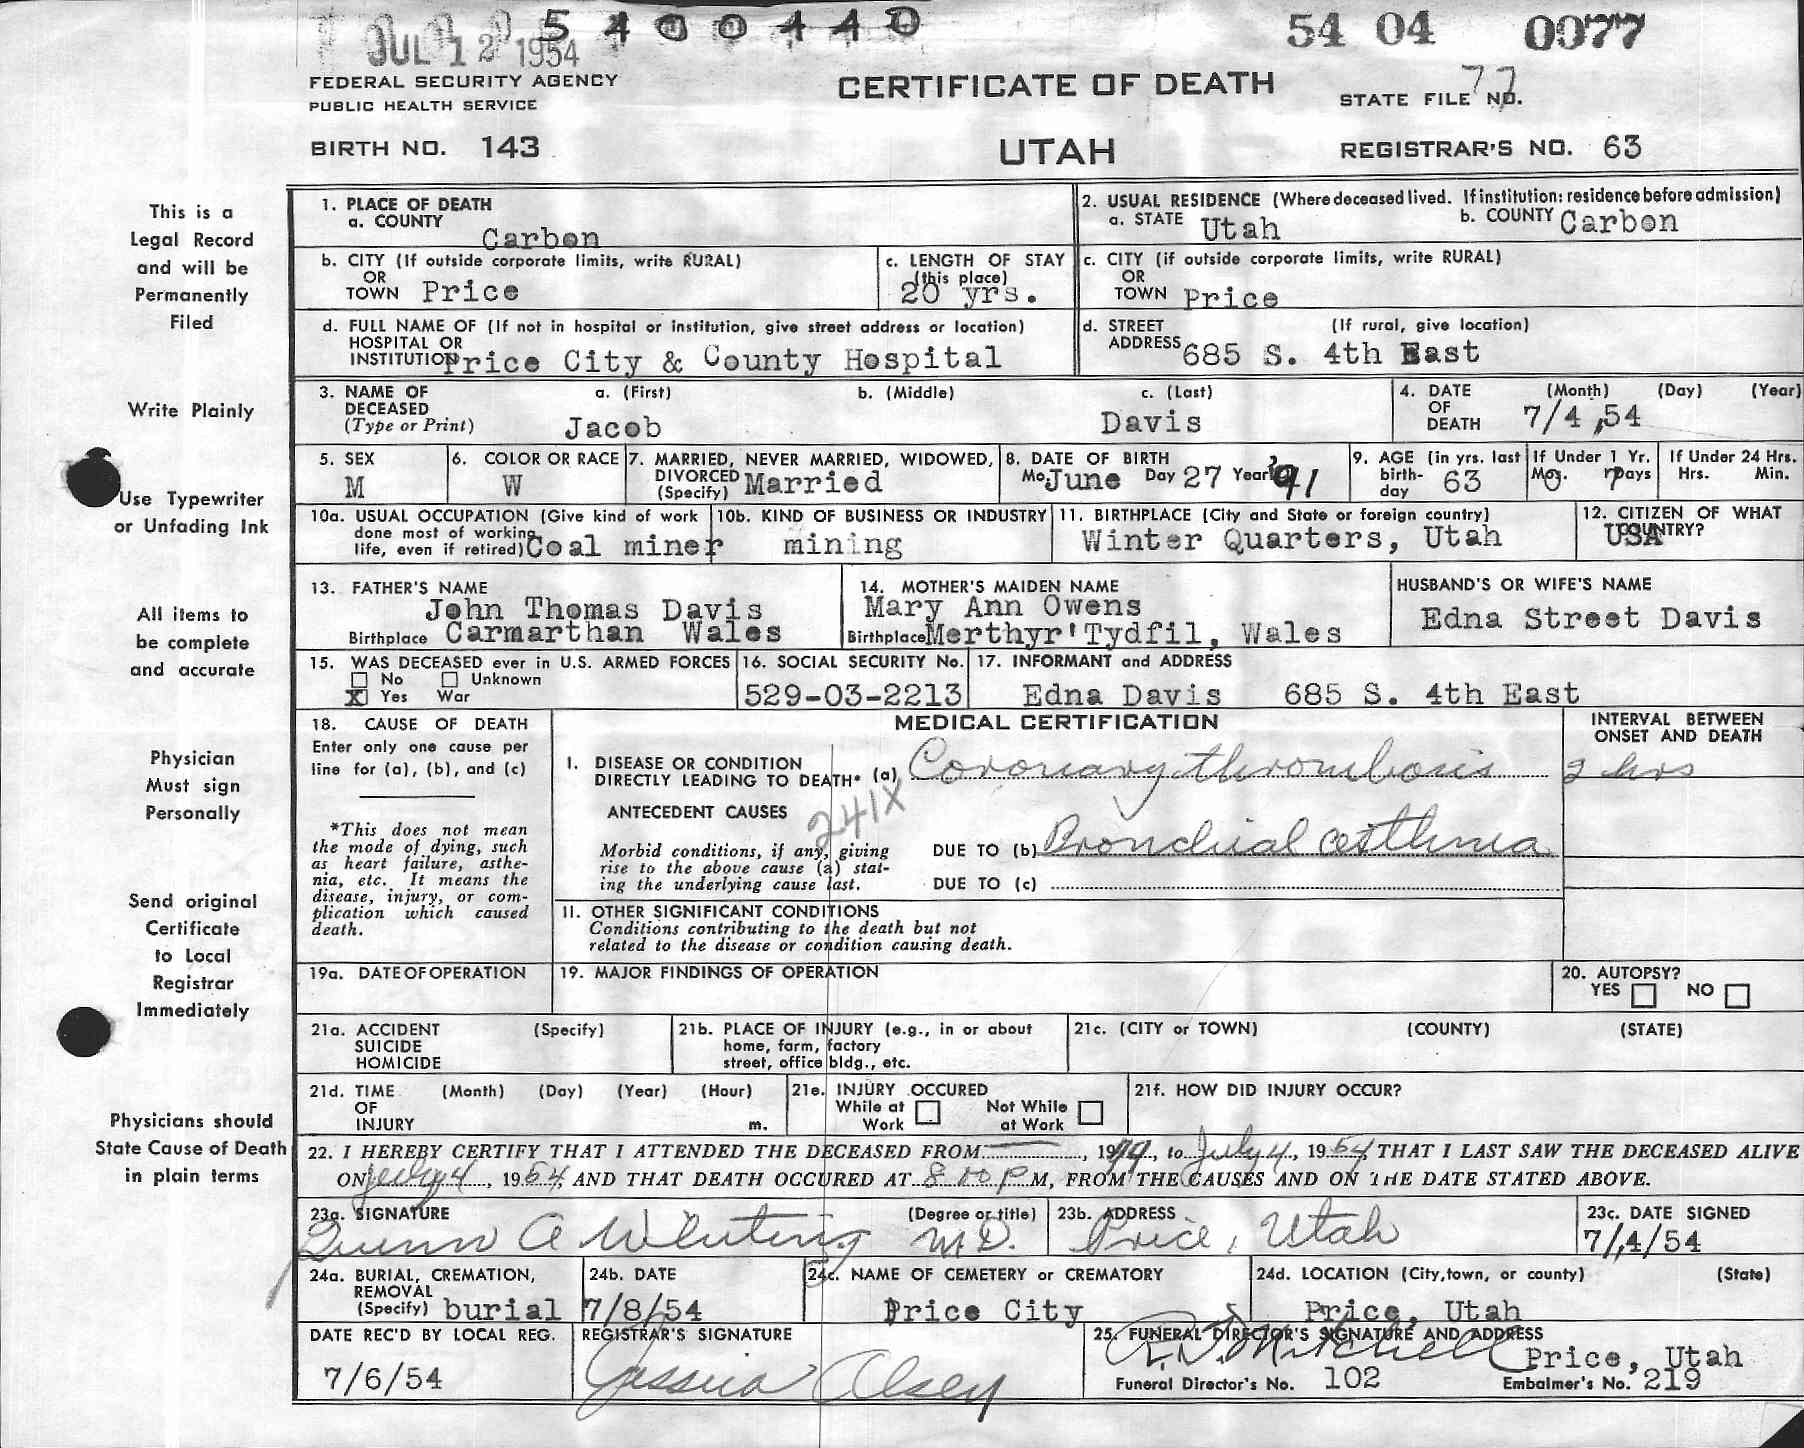 5400440
JUL 12 1954
54 04 0077
FEDERAL SECURITY AGENCY
PUBLIC HEALTH SERVICE
CERTIFICATE OF DEATH
77
STATE FILE NO.
BIRTH NO. 143
UTAH
REGISTRAR'S NO. 63
This is a
Legal Record
and will be
Permanently
Filed
Write Plainly
Use Typewriter
or Unfading Ink
All items to
be complete
and accurate
Physician
Must sign
Personally
Send original
Certificate
to Local
Registrar
Immediately
Physicians should
State Cause of Death
in plain terms
1. PLACE OF DEATH
a. COUNTY
Carbon
2. USUAL RESIDENCE (Where deceased lived. If institution: residence before admission)
a. STATE Utah b. COUNTY Carbon
b. CITY (If outside corporate limits, write RURAL)
OR
TOWN Price
c. LENGTH OF STAY
(this place)
20 yrs.
c. CITY (if outside corporate limits, write RURAL)
OR
TOWN Price
d. FULL NAME OF (If not in hospital or institution, give street address or location)
HOSPITAL OR
INSTITUTION Price City & County Hospital
d. STREET (If rural, give location)
ADDRESS 685 S. 4th East
3. NAME OF a. (First) b. (Middle) c. (Last)
DECEASED
(Type or Print) Jacob Davis
4. DATE (Month) (Day) (Year)
OF
DEATH 7/4,54
5. SEX
M
6. COLOR OR RACE
W
7. MARRIED, NEVER MARRIED, WIDOWED,
DIVORCED
(Specify) Married
8. DATE OF BIRTH
Mo. June Day 27 Year '91
9. AGE (in yrs. last
birth-
day 63
If Under 1 Yr.
Mos. Days
0 7
If Under 24 Hrs.
Hrs. Min.
10a. USUAL OCCUPATION (Give kind of work
done most of working
life, even if retired) Coal miner
10b. KIND OF BUSINESS OR INDUSTRY
mining
11. BIRTHPLACE (City and State or foreign country)
Winter Quarters, Utah
12. CITIZEN OF WHAT
COUNTRY?
USA
13. FATHER'S NAME
John Thomas Davis
Birthplace Carmarthan Wales
14. MOTHER'S MAIDEN NAME
Mary Ann Owens
Birthplace Merthyr'Tydfil, Wales
HUSBAND'S OR WIFE'S NAME
Edna Street Davis
15. WAS DECEASED ever in U.S. ARMED FORCES
No Unknown
X Yes War
16. SOCIAL SECURITY No.
529-03-2213
17. INFORMANT and ADDRESS
Edna Davis 685 S. 4th East
18. CAUSE OF DEATH
Enter only one cause per
line for (a), (b), and (c)
*This does not mean
the mode of dying, such
as heart failure, asthe-
nia, etc. It means the
disease, injury, or com-
plication which caused
death.
MEDICAL CERTIFICATION
INTERVAL BETWEEN
ONSET AND DEATH
I. DISEASE OR CONDITION
DIRECTLY LEADING TO DEATH* (a) Coronary thrombosis 2 hrs
ANTECEDENT CAUSES
241X
Morbid conditions, if any, giving
rise to the above cause (a) stat-
ing the underlying cause last.
DUE TO (b) Bronchial asthma
DUE TO (c)
II. OTHER SIGNIFICANT CONDITIONS
Conditions contributing to the death but not
related to the disease or condition causing death.
19a. DATE OF OPERATION
19. MAJOR FINDINGS OF OPERATION
20. AUTOPSY?
YES NO
21a. ACCIDENT (Specify)
SUICIDE
HOMICIDE
21b. PLACE OF INJURY (e.g., in or about
home, farm, factory
street, office bldg., etc.
21c. (CITY or TOWN) (COUNTY) (STATE)
21d. TIME (Month) (Day) (Year) (Hour)
OF
INJURY m.
21e. INJURY OCCURED
While at Work Not While at Work
21f. HOW DID INJURY OCCUR?
22. I HEREBY CERTIFY THAT I ATTENDED THE DECEASED FROM , 19 , to July 4, 1954, THAT I LAST SAW THE DECEASED ALIVE
ON July 4, 1954, AND THAT DEATH OCCURED AT 8:00 P M, FROM THE CAUSES AND ON THE DATE STATED ABOVE.
23a. SIGNATURE (Degree or title)
Quinn A Whiting M.D.
23b. ADDRESS
Price, Utah
23c. DATE SIGNED
7/4/54
24a. BURIAL, CREMATION,
REMOVAL
(Specify) burial
24b. DATE
7/8/54
24c. NAME OF CEMETERY or CREMATORY
Price City
24d. LOCATION (City, town, or county) (State)
Price, Utah
DATE REC'D BY LOCAL REG.
7/6/54
REGISTRAR'S SIGNATURE
25. FUNERAL DIRECTOR'S SIGNATURE AND ADDRESS
Mitchell Price, Utah
Funeral Director's No. 102 Embalmer's No. 219